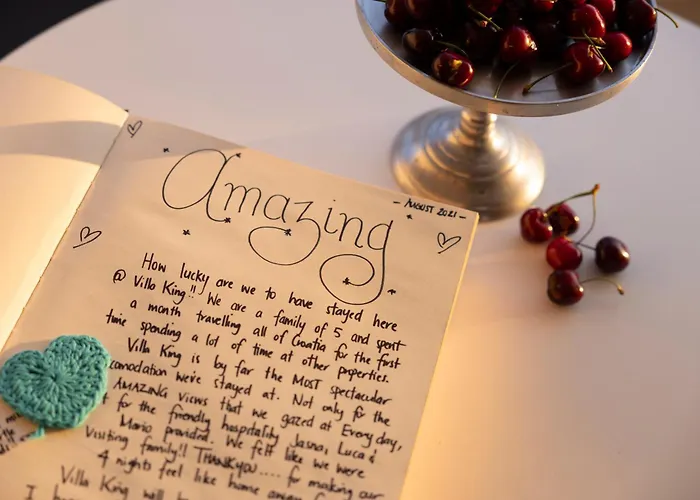 Amazing
- AUGUST 2021 -
How lucky are we to have stayed here
@ Villa King!! We are a family of 5 and spent
a month travelling all of Croatia for the first
time spending a lot of time at other properties.
Villa King is by far the MOST spectacular
accomodation we've stayed at. Not only for the
AMAZING views that we gazed at Every day,
for the friendly hospitality Jasna, Luca &
Mario provided. We felt like we were
visiting family!! THANKYOU .... for making our
4 nights feel like home away
Villa King will
I